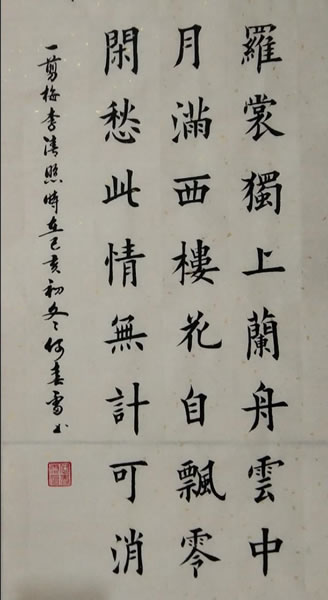 羅裳獨上蘭舟雲中
月滿西樓花自飄零
閑愁此情無計可消
一剪梅李清照時在己亥初冬何春雪书